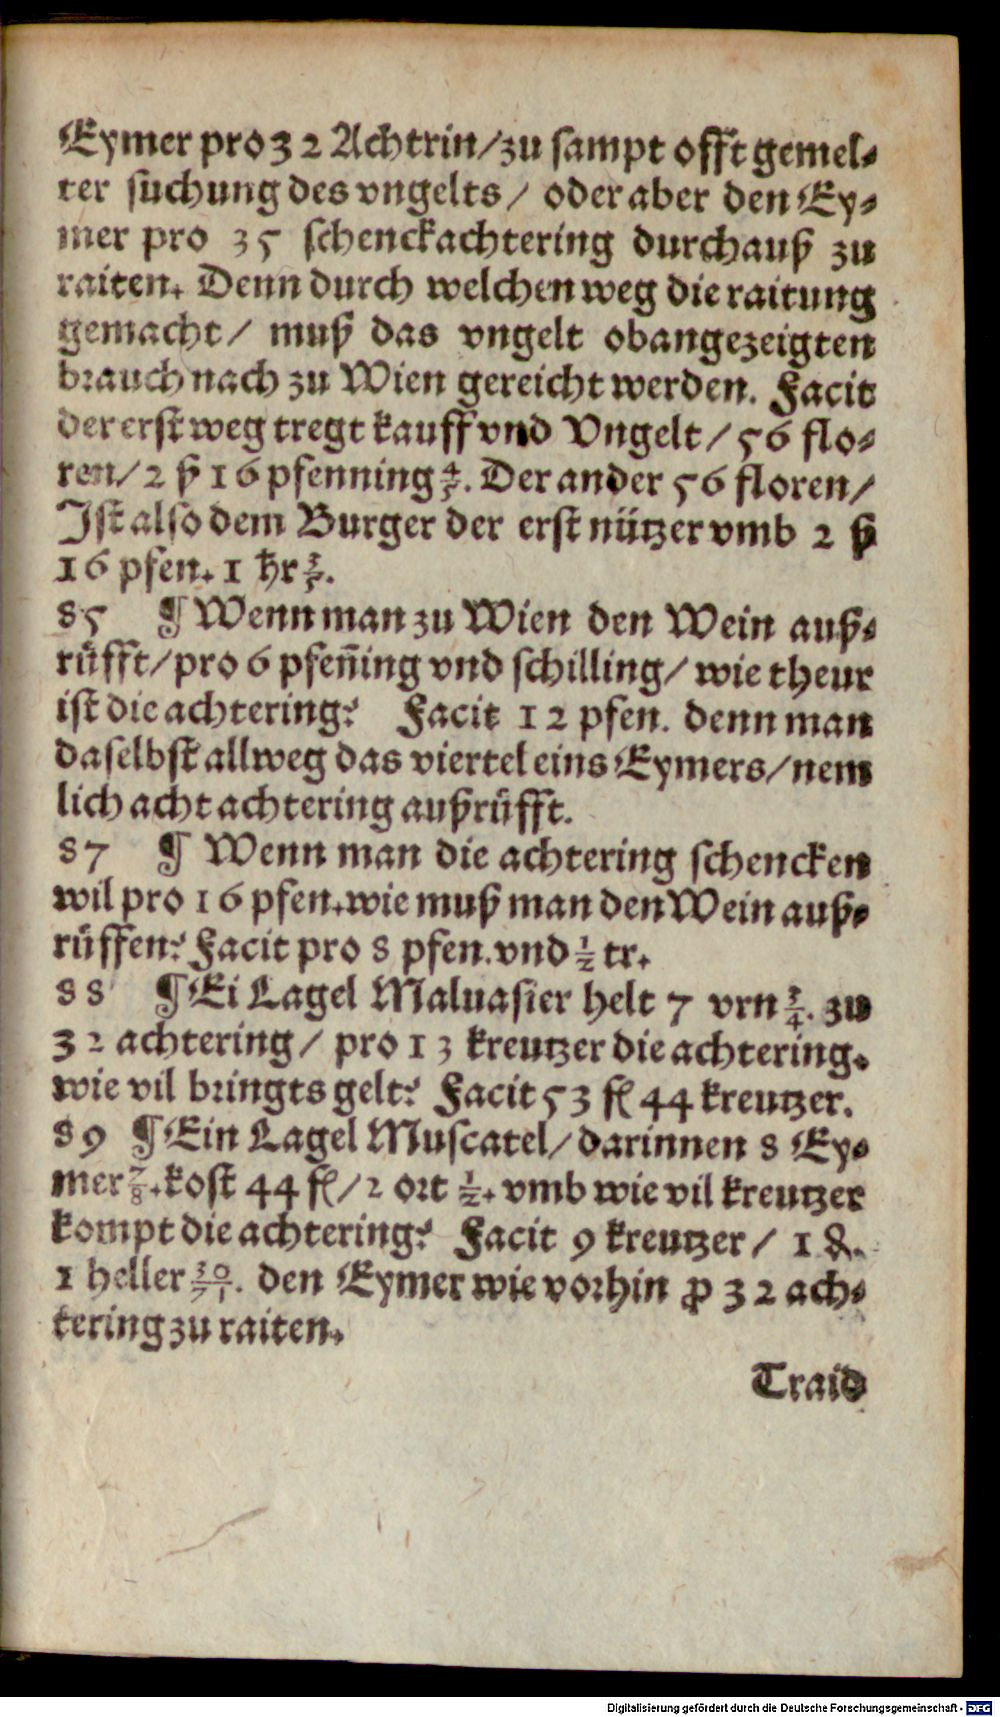 Eymer pro 32 Achtrin/zu sampt offt gemel⸗
ter suchung des vngelts/ oder aber den Ey⸗
mer pro 35 schenckachtering durchauß zu
raiten. Denn durch welchen weg die raitung
gemacht/ muß das vngelt obangezeigten
brauch nach zu Wien gereicht werden. Facit
der erst weg tregt kauff vnd Vngelt/ 56 flo⸗
ren/ 2 ß 16 pfenning 4/5. Der ander 56 floren/
Ist also dem Burger der erst nützer vmb 2 ß
16 pfen. 1 hr 3/5.
85 ¶ Wenn man zu Wien den Wein auß⸗
rüfft/ pro 6 pfen̄ing vnd schilling/ wie theur
ist die achtering? Facit 12 pfen. denn man
daselbst allweg das viertel eins Eymers/ nem
lich acht achtering außrüfft.
87 ¶ Wenn man die achtering schencken
wil pro 16 pfen. wie muß man den Wein auß⸗
rüffen? Facit pro 8 pfen. vnd 1/2 tr.
88 ¶ Ei Lagel Maluasier helt 7 vrn 3/4. zu
32 achtering/ pro 13 kreutzer die achtering.
wie vil bringts gelt? Facit 53 fl 44 kreutzer.
89 ¶ Ein Lagel Muscatel/ darinnen 8 Ey⸗
mer 7/8. kost 44 fl/ 2 ort 1/2. vmb wie vil kreutzer
kompt die achtering? Facit 9 kreutzer/ 1 ₰.
1 heller 30/71. den Eymer wie vorhin ꝓ 32 ach⸗
tering zu raiten.
Traid
Digitalisierung gefördert durch die Deutsche Forschungsgemeinschaft - DFG